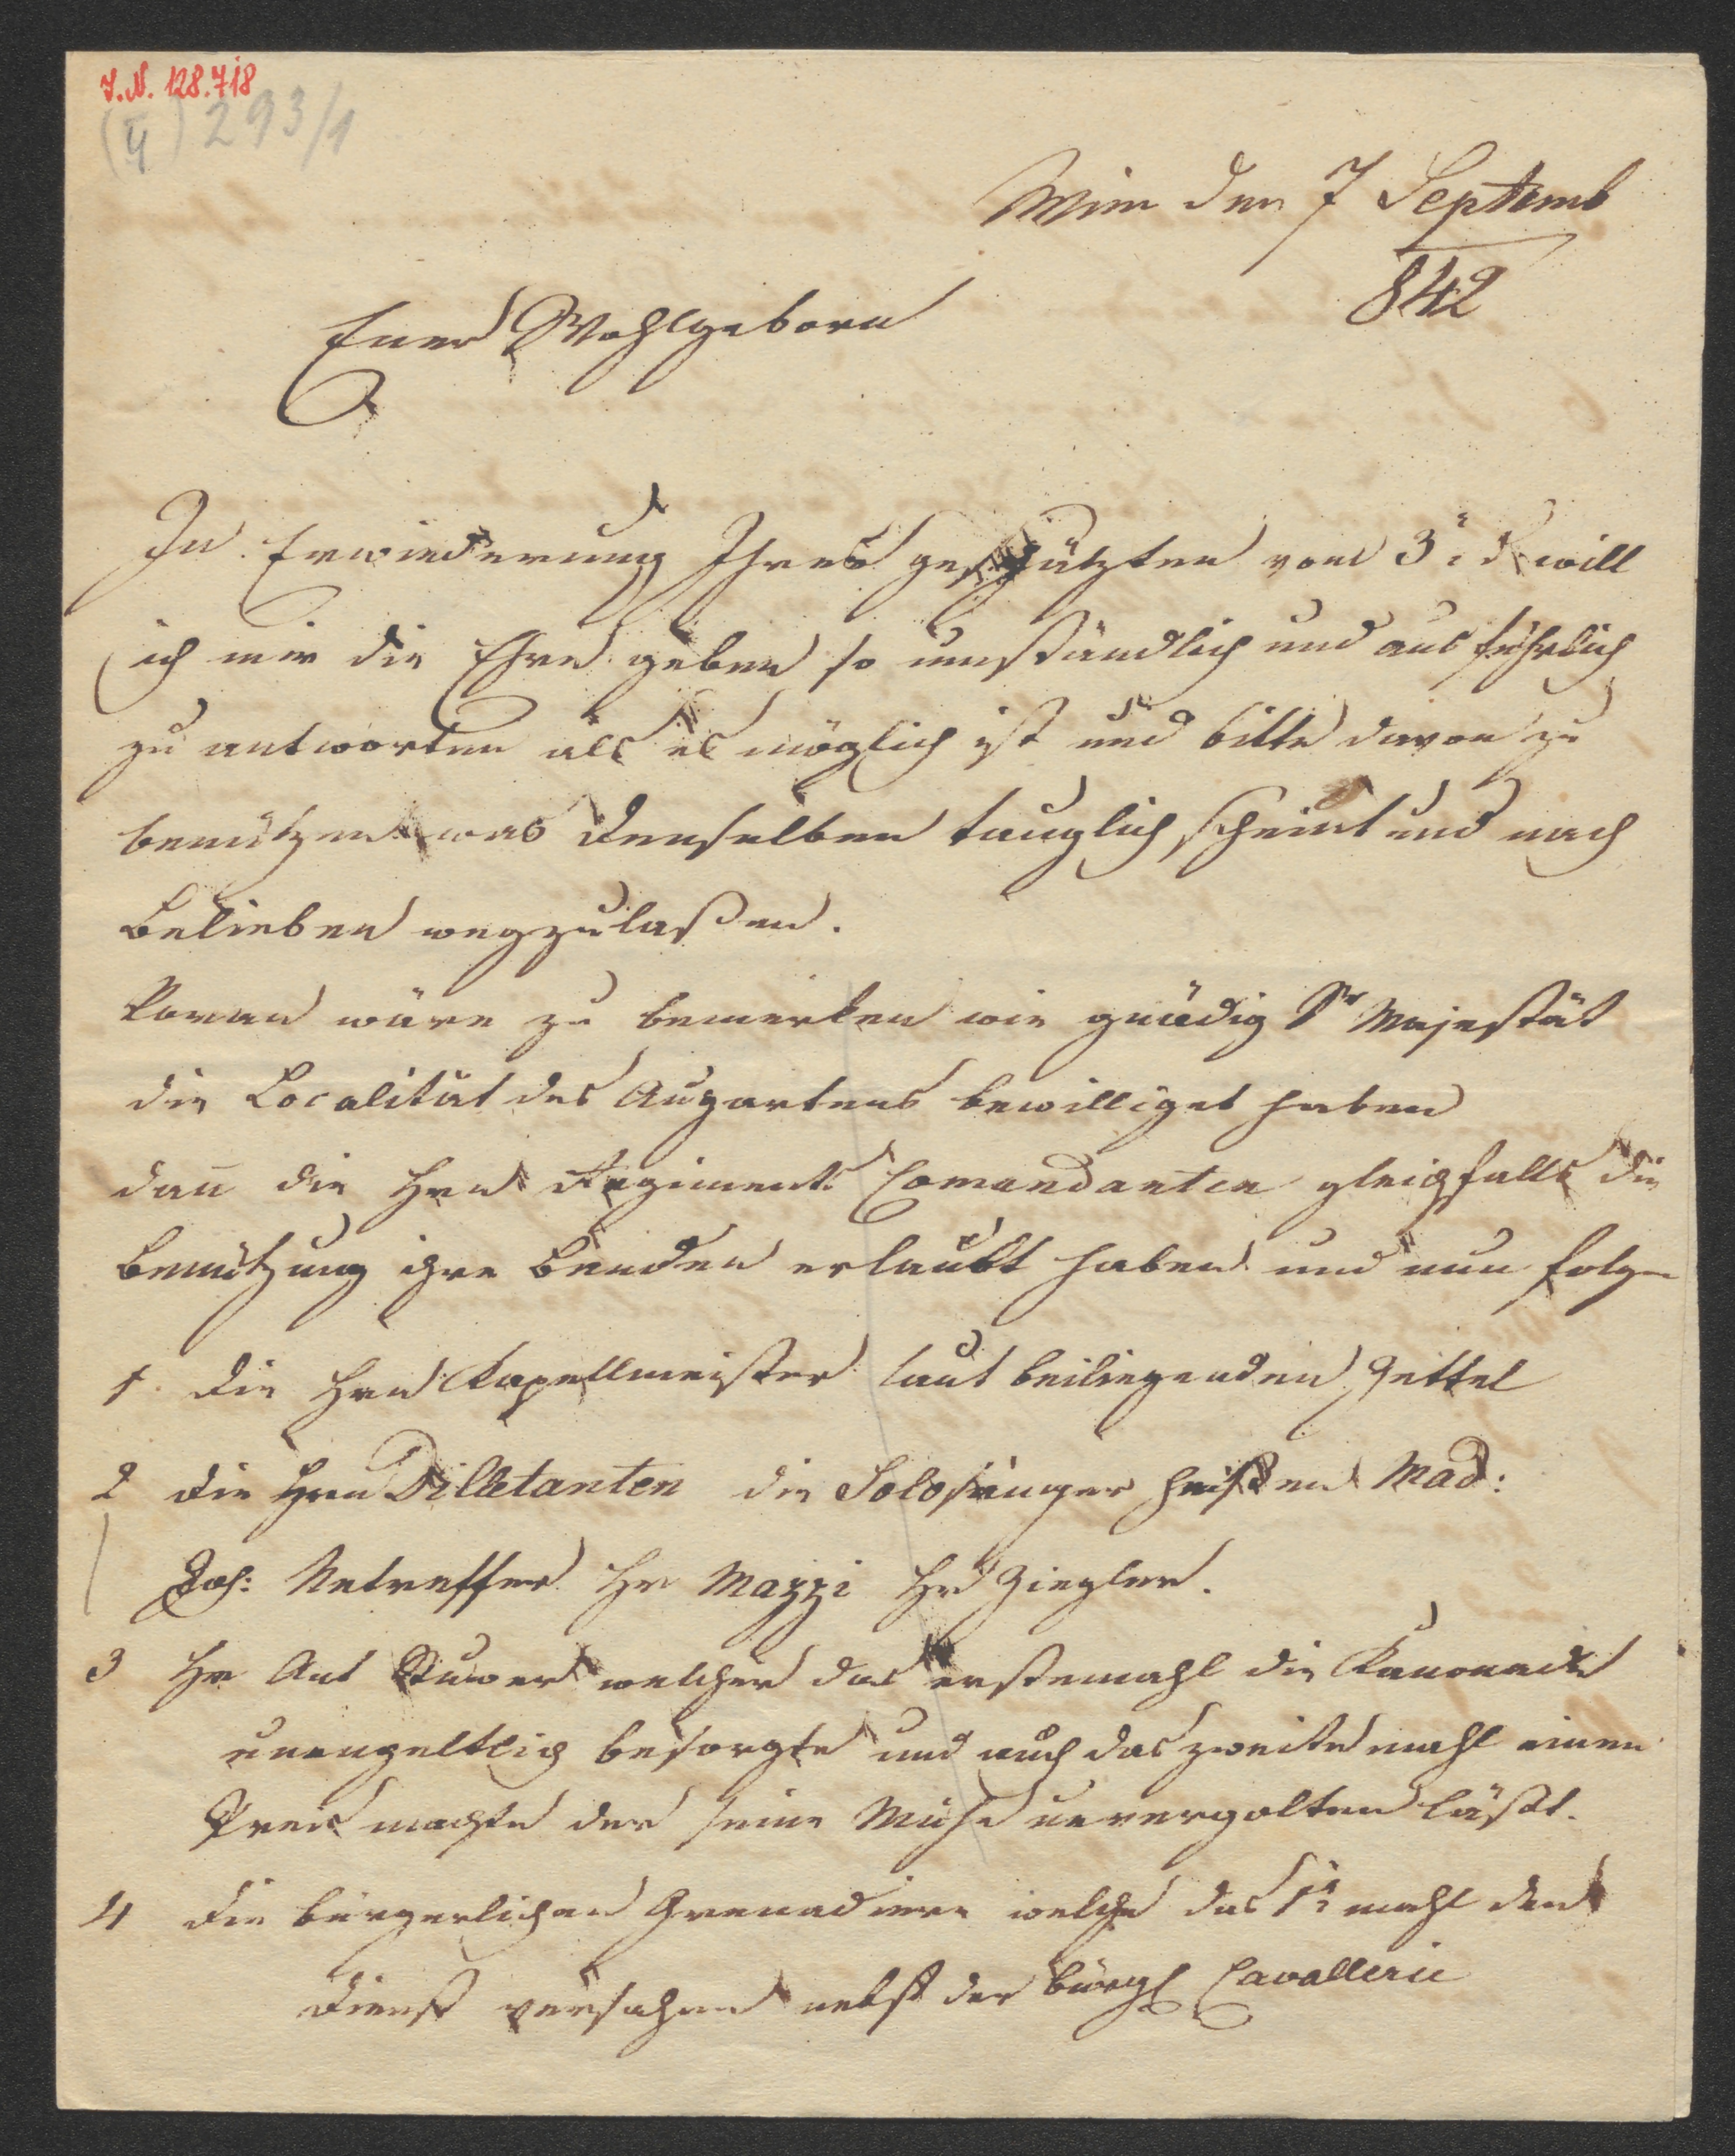 I.N. 128.718
(4) 293/1
Wien den 7 Septemb
842
Euer Wohlgeborn
In Erwiederung Ihres geschätzten vom 3t d will
ich mir die Ehre geben so umständlich und ausführlich
zu antworten als es möglich ist und bitte davon zu
benützen was denselben tauglich scheint und nach
Belieben wegzulaßen.
Voran wäre zu bemerken wie gnädig Sr Majestät
die Localität des Augartens bewilliget haben
dan̄ die Hrn Regiments Comandanten gleichfalls die
Benützung ihre Banden erlaubt haben und nun folgen
1 die Hrn Kapellmeister laut beiliegenden Zettel
2 die Hrn Dilletanten die Solosänger heißen Mad:
Jos: Netreffer Hr Mazzi Hr Ziegler.
3 Hr Ant Stuwer welcher das erstemahl die Kanonade
unengeltlich besorgte und auch das zweite mahl einen
Preis machte der seine Mühe unvergolten läßt.
4 die bürgerlichen Grenadiere welche das 1t mahl den
Dienst versahen nebst der bürgl Cavallerie